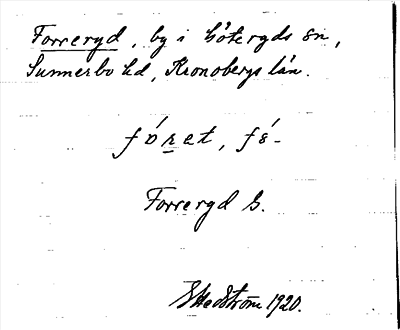 Forreryd, by i Göteryds sn,
Sunnerbo hd, Kronobergs län.
fóret, fó-
Forreryd G.
G Hedström 1920.